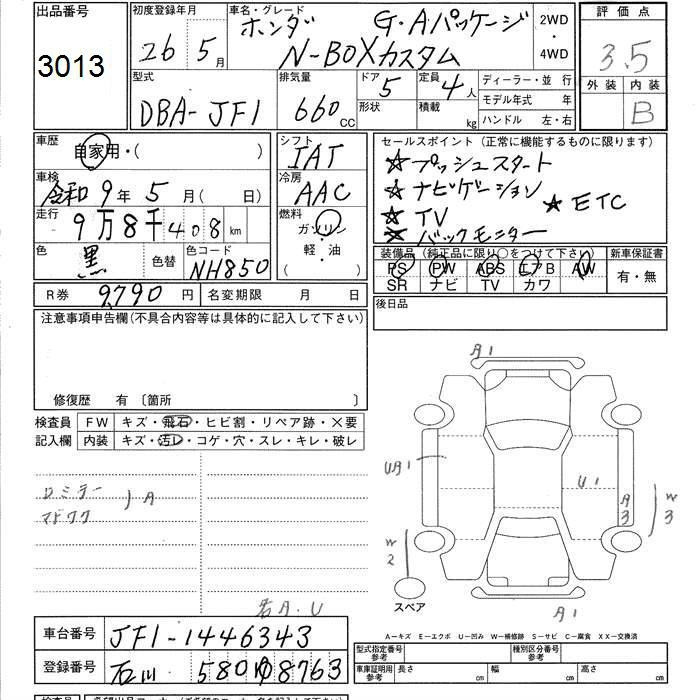 出品番号
3013
初度登録年月
26年 5月
車名・グレード
ホンダ G・Aパッケージ
N-BOXカスタム
2WD
・
4WD
評価点
3.5
外装 内装
B
型式
DBA-JF1
排気量
660 CC
ドア 5
形状
定員 4人
積載 kg
ディーラー・並行
モデル年式 年
ハンドル 左・右
車歴
自家用・( )
車検
令和9年5月( 日)
走行
9万8千408km
色
黒
色替
色コード
NH850
シフト
IAT
冷房
AAC
燃料
ガソリン
軽・油
( )
セールスポイント(正常に機能するものに限ります)
★ プッシュスタート
★ ナビゲーション
★ ETC
★ TV
★ バックモニター
装備品(純正品に限り○をつけて下さい)
PS PW ABS エアB AW
SR ナビ TV カワ
新車保証書
有・無
R券 9,790円
名変期限 月 日
後日品
注意事項申告欄(不具合内容等は具体的に記入して下さい)
修復歴 有〔箇所 〕
検査員
記入欄
FW キズ・飛石・ヒビ割・リペア跡・×要
内装 キズ・汚レ・コゲ・穴・スレ・キレ・破レ
ロミラー
マドワク
)A
A1
UA1
U1
A3
W3
W2
スペア
A1
A.U
A−キズ E−エクボ U−凹み W−補修跡 S−サビ C−腐食 XX−交換済
車台番号
JF1-1446343
登録番号
石川 580 8763
型式指定番号
参考
種別区分番号
参考
車庫証明用
参考
長さ cm
幅 cm
高さ cm